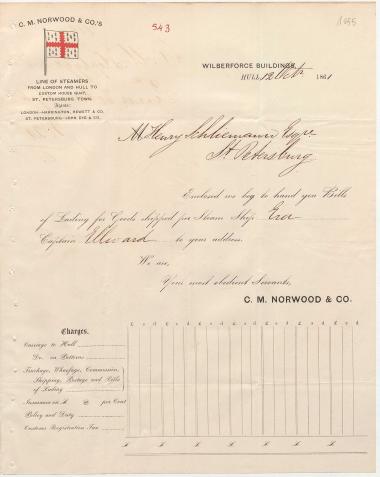 C. M. NORWOOD & CO.'S
543
1055
LINE OF STEAMERS
FROM LONDON AND HULL TO
CUSTOM HOUSE QUAY,
ST. PETERSBURG TOWN.
Agents:
LONDON–HARRINGTON, HEWETT & CO.
ST. PETERSBURG–JOHN DYE & CO.
WILBERFORCE BUILDINGS,
HULL 12 Octr 1861
M. Henry Schliemann Esqre
St. Petersburg
Enclosed we beg to hand you Bills
of Lading for Goods shipped per Steam Ship Era
Captain Ellward to your address.
We are,
Your most obedient Servants,
C. M. NORWOOD & CO.
Charges.
£ s d £ s d £ s d £ s d £ s d £ s d
Carriage to Hull
Do. in Bottoms
Trackage, Wharfage, Commission,
Shipping, Postage and Bills
of Lading
Insurance on £ @ per Cent
Policy and Duty
Customs Registration Tax
£ £ £ £ £ £